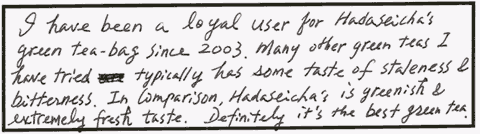 I have been a loyal user for Hadaseicha's
green tea-bag since 2003. Many other green teas I
have tried typically has some taste of staleness &
bitterness. In Comparison, Hadaseicha's is greenish &
extremely fresh taste. Definitely it's the best green tea.